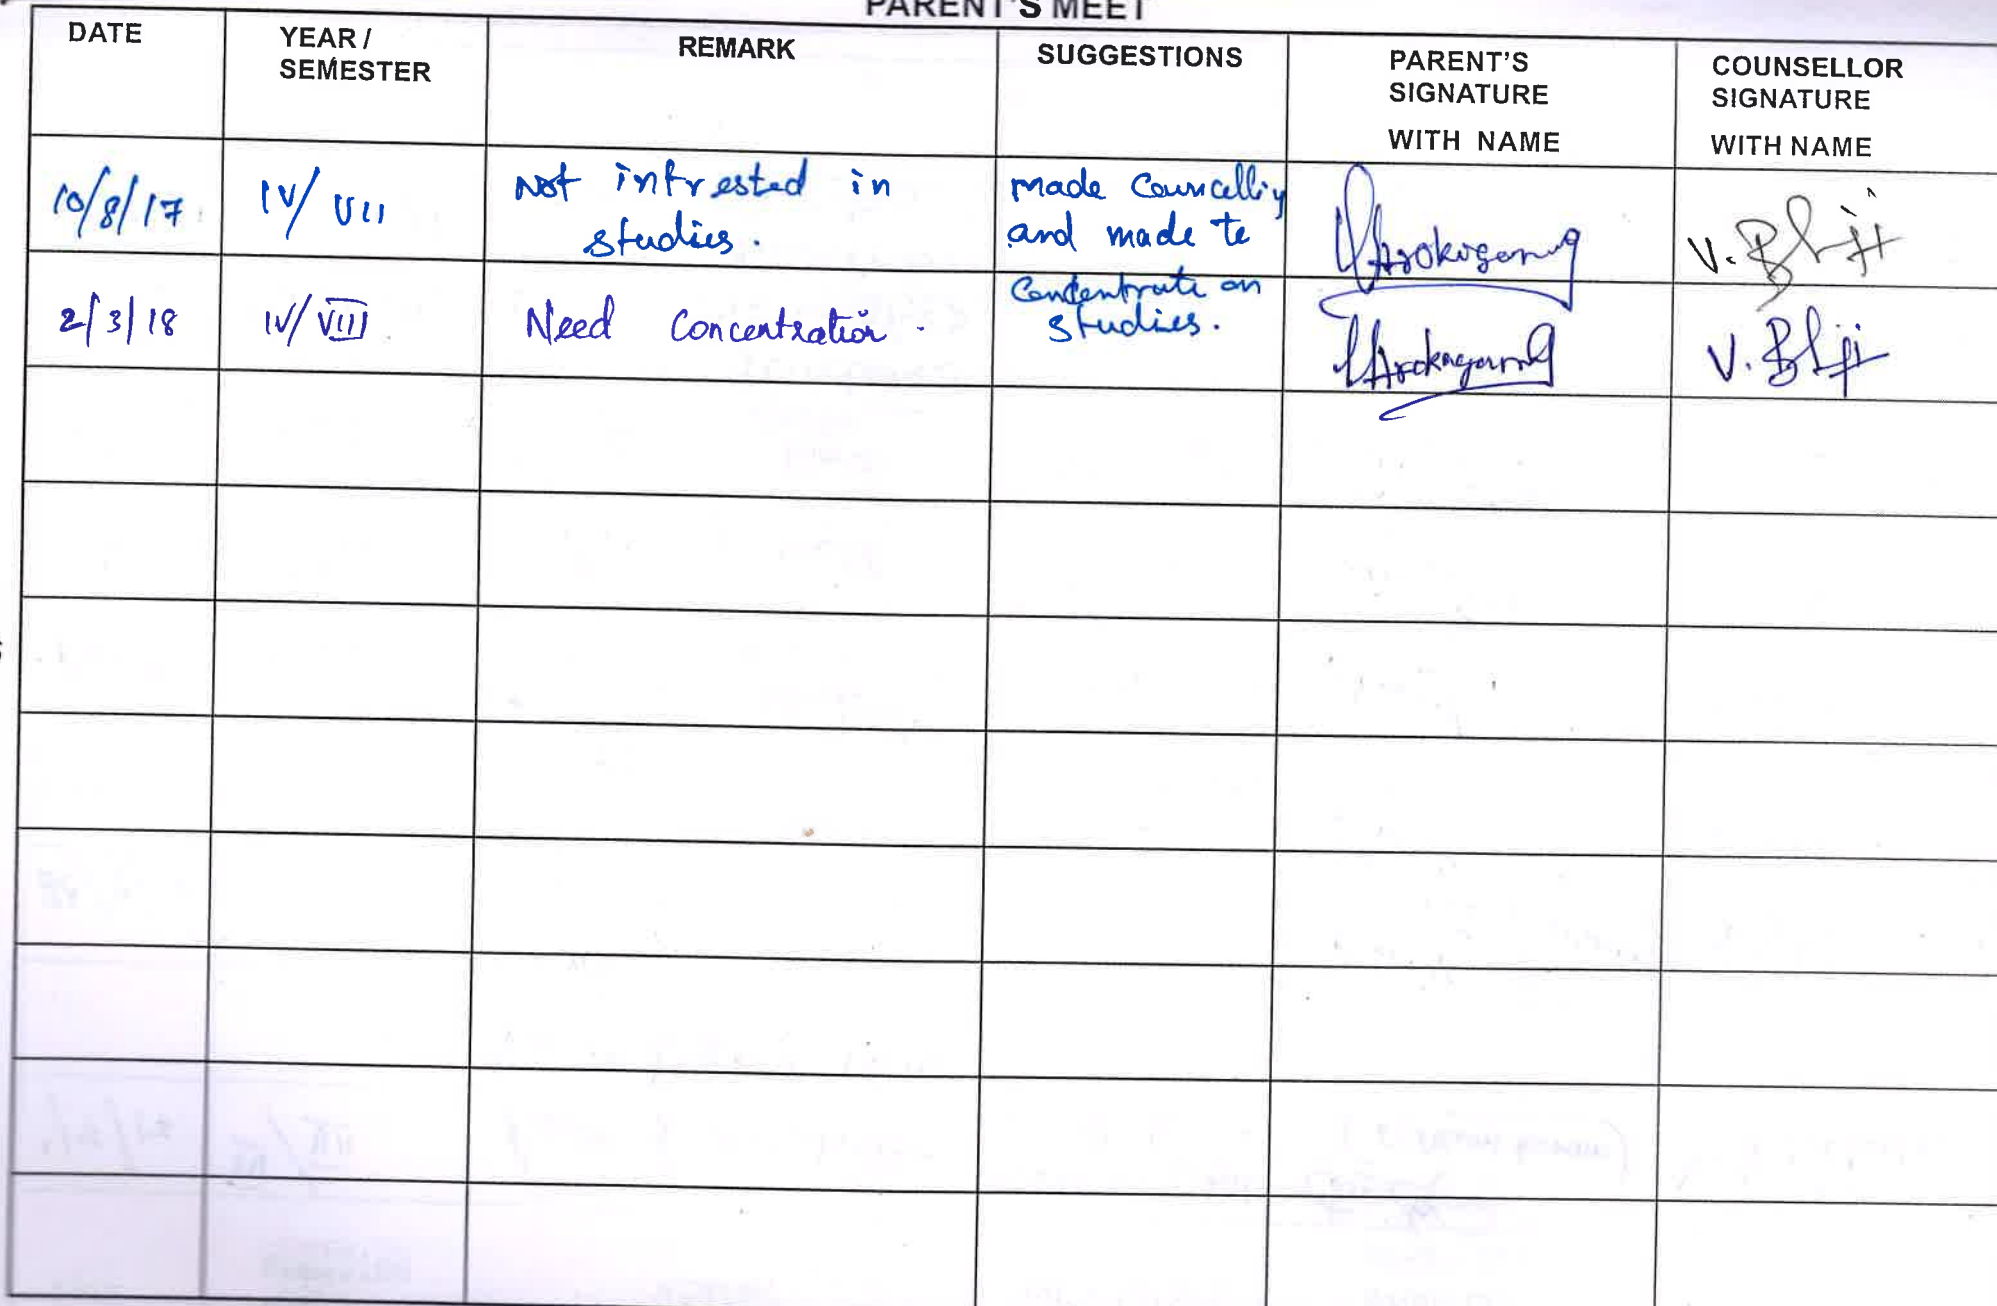 PARENT'S MEET
DATE
YEAR /
SEMESTER
REMARK
SUGGESTIONS
PARENT'S
SIGNATURE
WITH NAME
COUNSELLOR
SIGNATURE
WITH NAME
10/8/17
IV/ VII
Not intrested in
studies.
made Councelling
and made to
Concentrate on
studies.
2/3/18
IV/ VIII
Need Concentration.